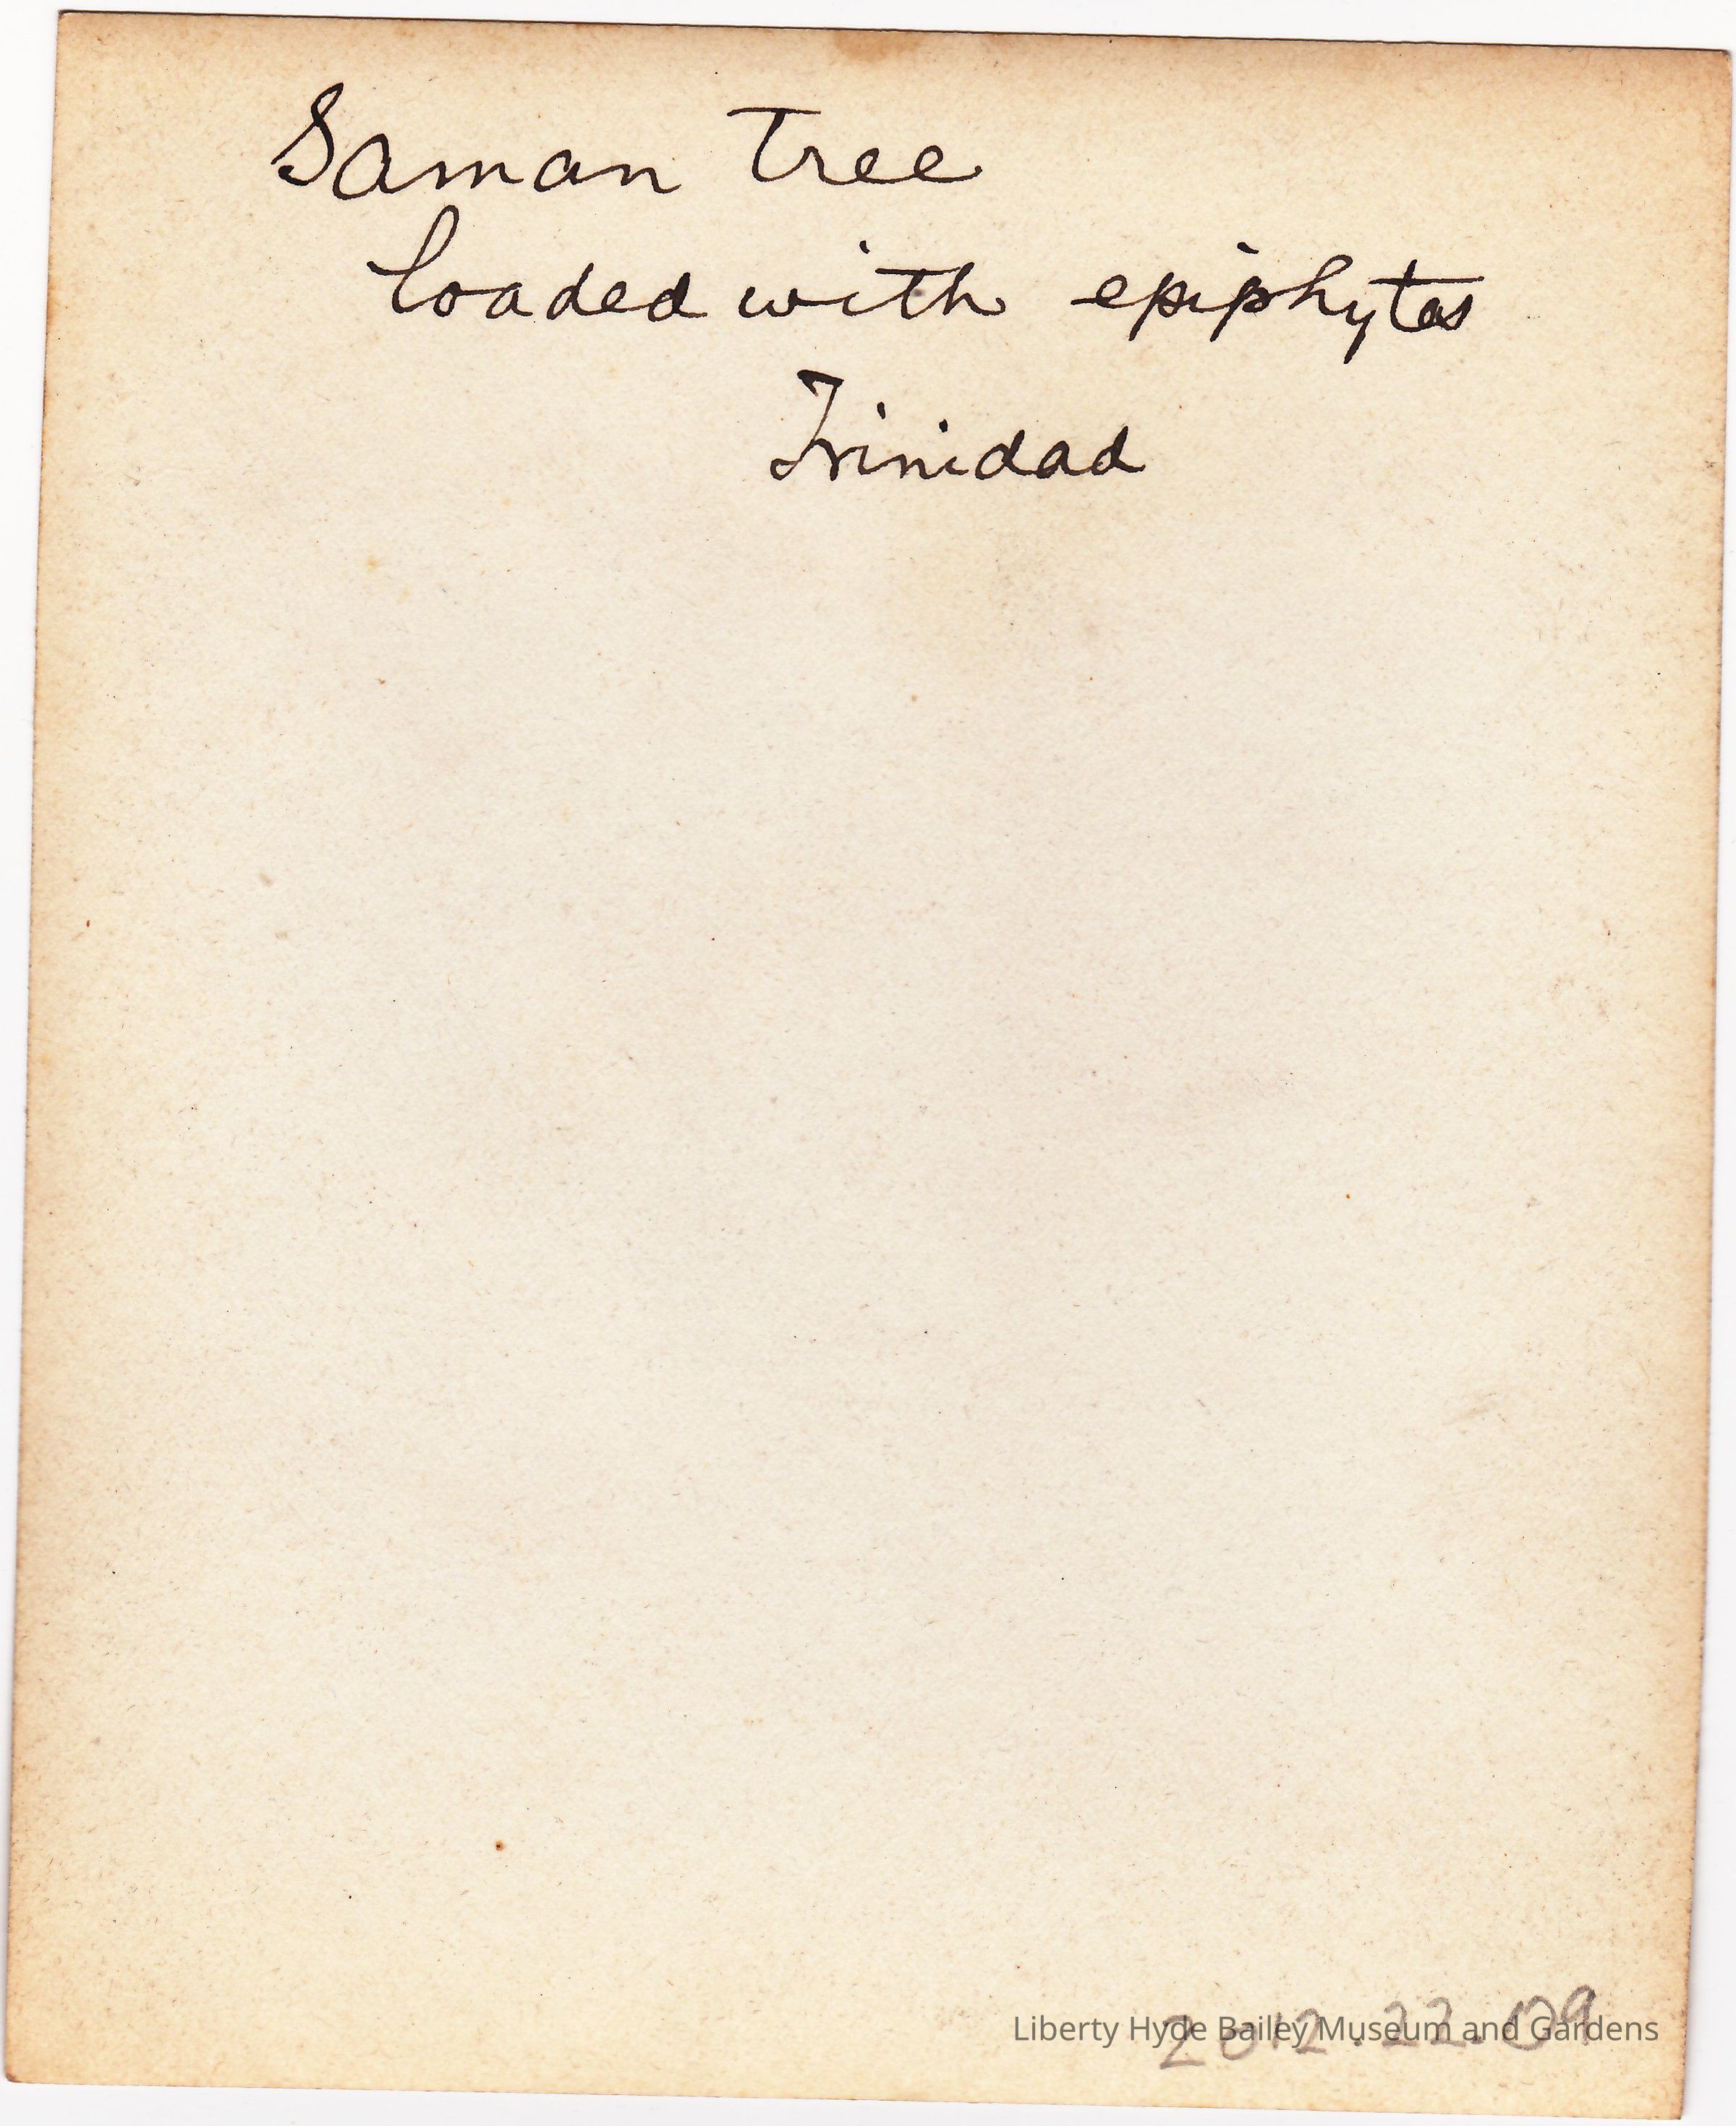 Saman Tree
loaded with epiphytes
Trinidad
2012.22.09
Liberty Hyde Bailey Museum and Gardens